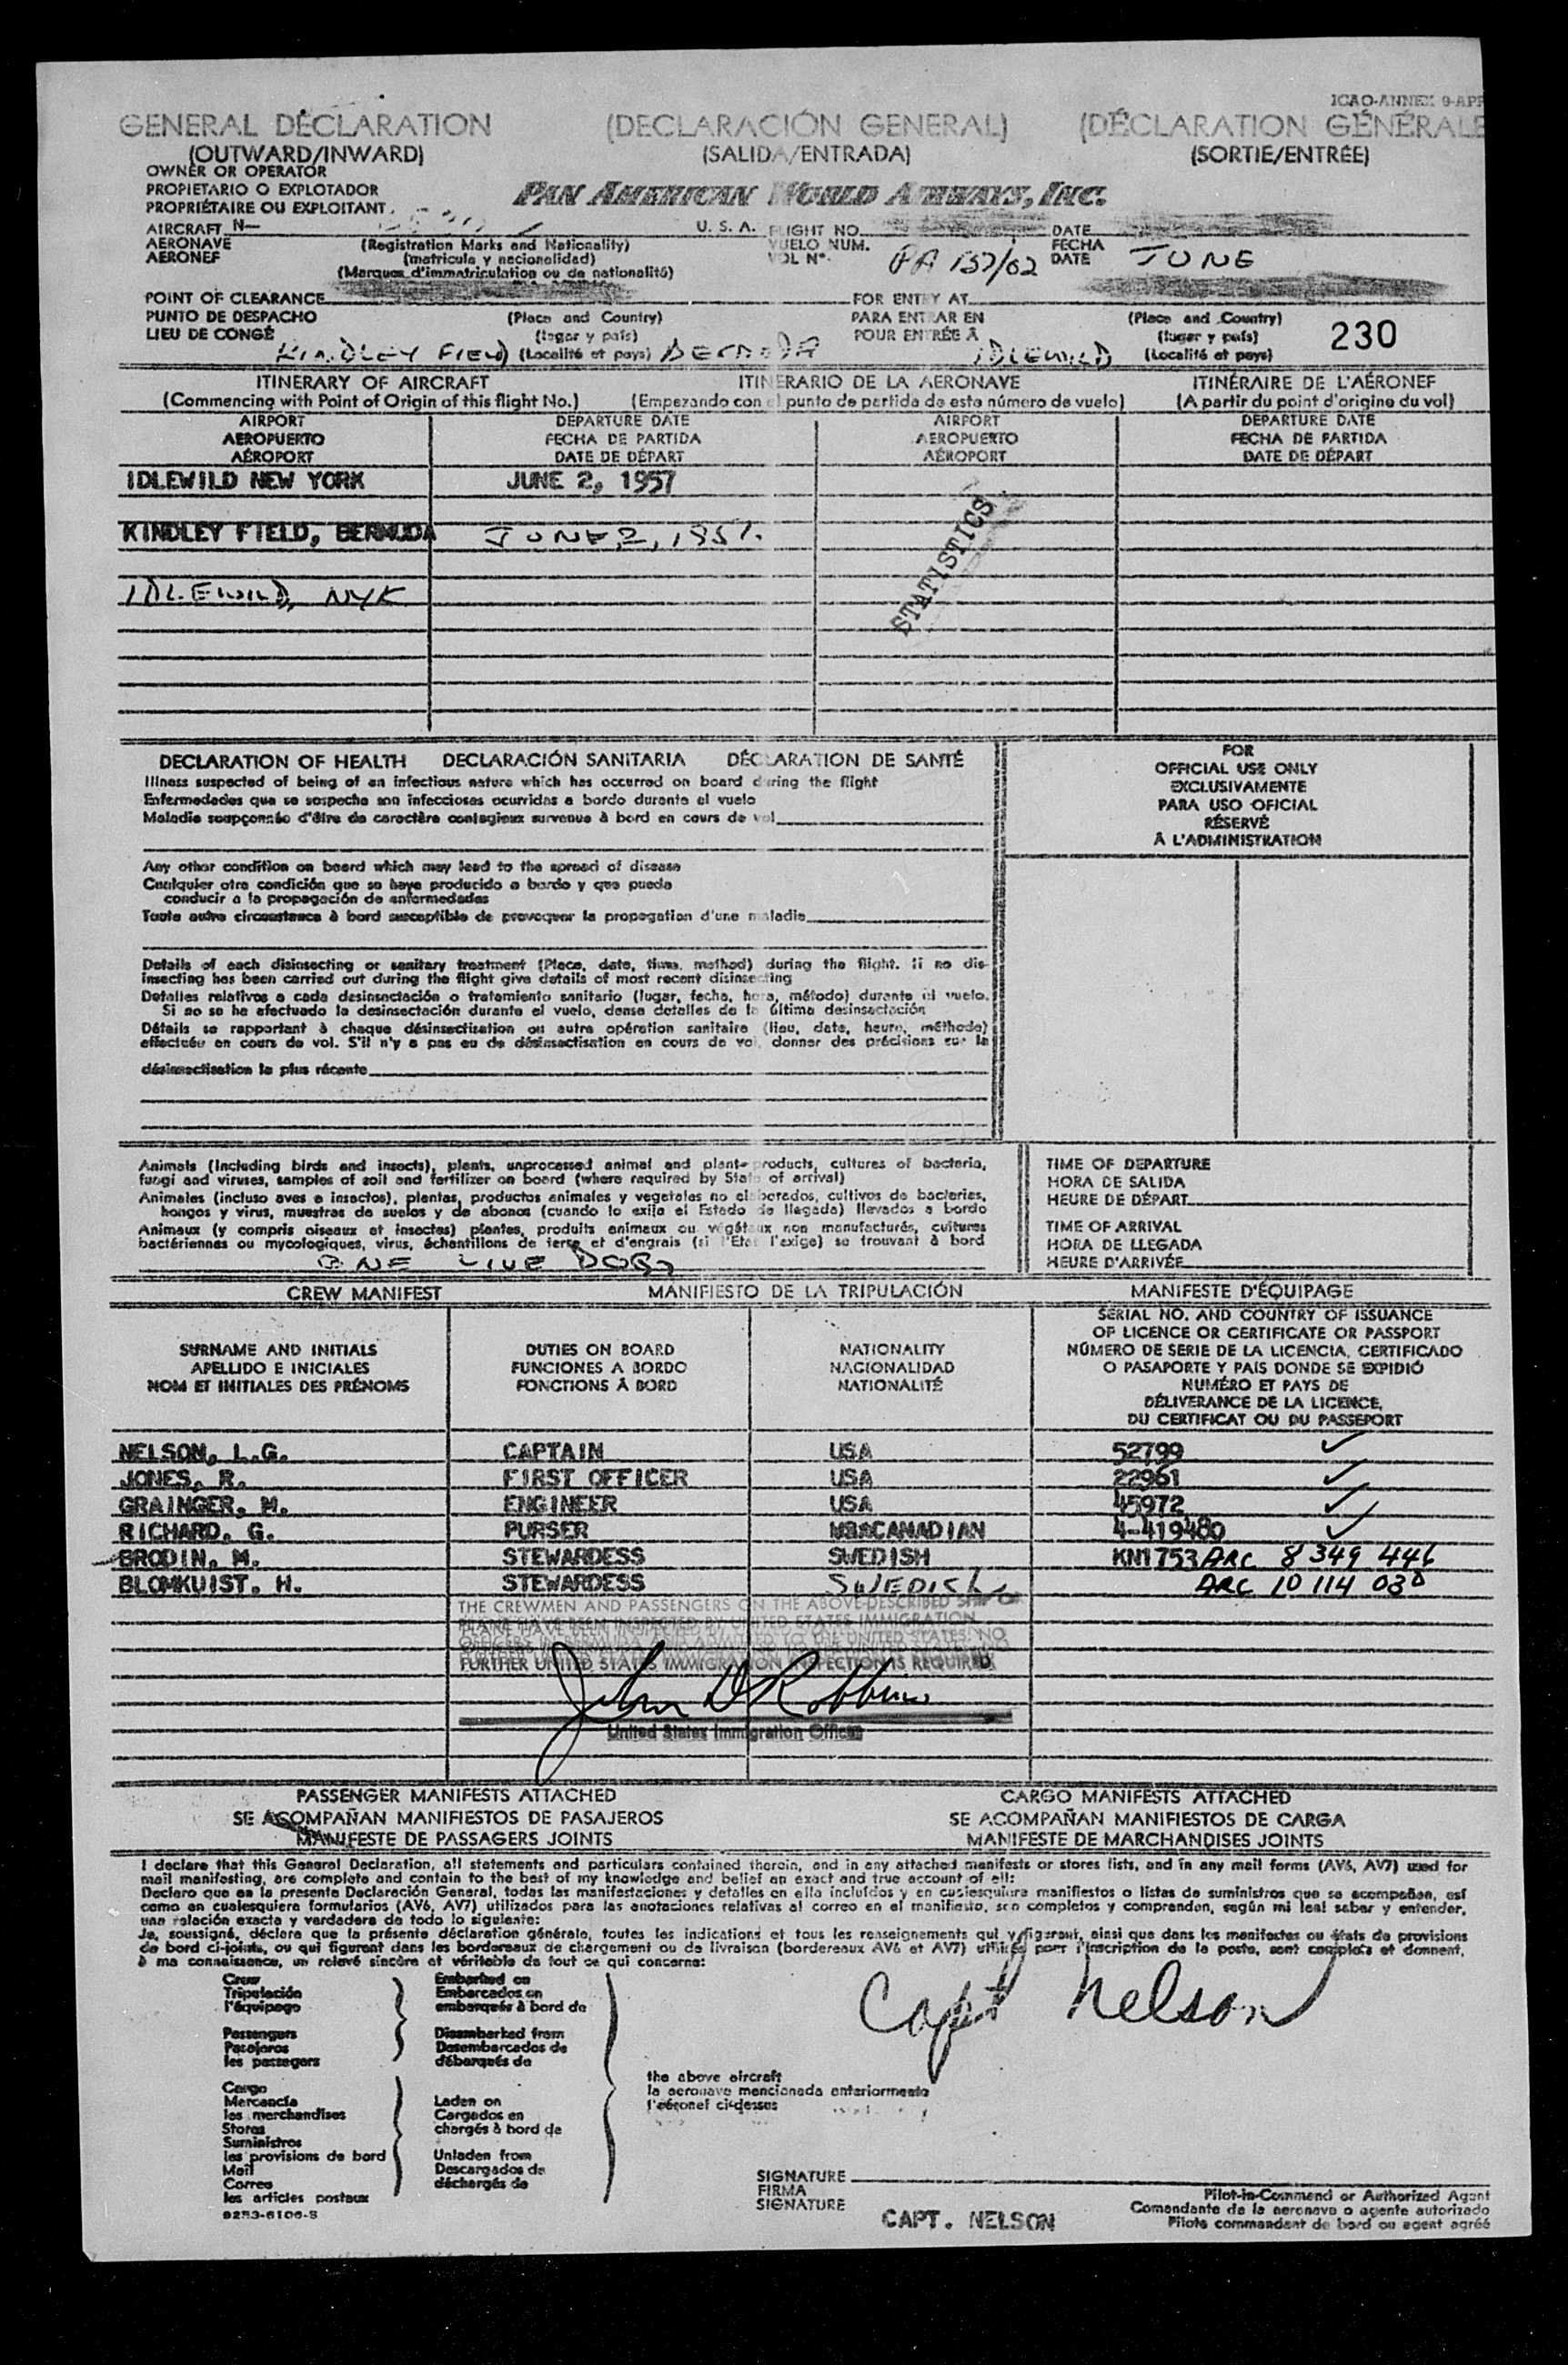 ICAO-ANNEX 9-APP
GENERAL DÉCLARATION (DECLARACIÓN GENERAL) (DÉCLARATION GÉNÉRALE
(OUTWARD/INWARD) (SALIDA/ENTRADA) (SORTIE/ENTRÉE)
OWNER OR OPERATOR
PROPIETARIO O EXPLOTADOR PAN AMERICAN WORLD AIRWAYS, INC.
PROPRIÉTAIRE OU EXPLOITANT
AIRCRAFT N— U. S. A. FLIGHT NO. DATE
AERONAVE (Registration Marks and Nationality) VUELO NUM. FECHA
AERONEF (matricula y nacionalidad) VOL Nº. PA 137/02 DATE JUNE
(Marques d'immatriculation ou de nationalité)
POINT OF CLEARANCE FOR ENTRY AT
PUNTO DE DESPACHO (Place and Country) PARA ENTRAR EN (Place and Country) 230
LIEU DE CONGÉ (lugar y país) POUR ENTRÉE À (lugar y país)
KINDLEY FIELD (Localité et pays) BERMUDA IDLEWILD (Localité et pays)
ITINERARY OF AIRCRAFT ITINERARIO DE LA AERONAVE ITINÉRAIRE DE L'AÉRONEF
(Commencing with Point of Origin of this flight No.) (Empezando con el punto de partida de este número de vuelo) (A partir du point d'origine du vol)
AIRPORT DEPARTURE DATE AIRPORT DEPARTURE DATE
AEROPUERTO FECHA DE PARTIDA AEROPUERTO FECHA DE PARTIDA
AÉROPORT DATE DE DÉPART AÉROPORT DATE DE DÉPART
IDLEWILD NEW YORK JUNE 2, 1957
STATISTICS
KINDLEY FIELD, BERMUDA JUNE 2, 1957.
IDLEWILD, NYK
DECLARATION OF HEALTH DECLARACIÓN SANITARIA DÉCLARATION DE SANTÉ
Illness suspected of being of an infectious nature which has occurred on board during the flight
Enfermedades que se sospecha son infecciosas ocurridas a bordo durante el vuelo
Maladie soupçonnée d'être de caractère contagieux survenue à bord en cours de vol
FOR
OFFICIAL USE ONLY
EXCLUSIVAMENTE
PARA USO OFICIAL
RÉSERVÉ
À L'ADMINISTRATION
Any other condition on board which may lead to the spread of disease
Cualquier otra condición que se haya producido a bordo y que pueda
conducir a la propagación de enfermedades
Toute autre circonstance à bord susceptible de provoquer la propagation d'une maladie
Details of each disinsecting or sanitary treatment (Place, date, time, method) during the flight. If no dis-
insecting has been carried out during the flight give details of most recent disinsecting
Detalles relativos a cada desinsectación o tratamiento sanitario (lugar, fecha, hora, método) durante el vuelo.
Si no se ha efectuado la desinsectación durante el vuelo, dense detalles de la última desinsectación
Détails se rapportant à chaque désinsectisation ou autre opération sanitaire (lieu, date, heure, méthode)
effectuée en cours de vol. S'il n'y a pas eu de désinsectisation en cours de vol, donner des précisions sur la
désinsectisation la plus récente
Animals (Including birds and insects), plants, unprocessed animal and plant-products, cultures of bacteria,
fungi and viruses, samples of soil and fertilizer on board (where required by State of arrival)
Animales (incluso aves e insectos), plantas, productos animales y vegetales no elaborados, cultivos de bacterias,
hongos y virus, muestras de suelos y de abonos (cuando lo exija el Estado de llegada) llevados a bordo
Animaux (y compris oiseaux et insectes) plantes, produits animaux ou végétaux non manufacturés, cultures
bactériennes ou mycologiques, virus, échantillons de terre et d'engrais (si l'Etat l'exige) se trouvant à bord
ONE LIVE DOG
TIME OF DEPARTURE
HORA DE SALIDA
HEURE DE DÉPART
TIME OF ARRIVAL
HORA DE LLEGADA
HEURE D'ARRIVÉE
CREW MANIFEST MANIFIESTO DE LA TRIPULACIÓN MANIFESTE D'ÉQUIPAGE
SURNAME AND INITIALS
APELLIDO E INICIALES
NOM ET INITIALES DES PRÉNOMS
DUTIES ON BOARD
FUNCIONES A BORDO
FONCTIONS À BORD
NATIONALITY
NACIONALIDAD
NATIONALITÉ
SERIAL NO. AND COUNTRY OF ISSUANCE
OF LICENCE OR CERTIFICATE OR PASSPORT
NÚMERO DE SERIE DE LA LICENCIA, CERTIFICADO
O PASAPORTE Y PAIS DONDE SE EXPIDIÓ
NUMÉRO ET PAYS DE
DÉLIVERANCE DE LA LICENCE,
DU CERTIFICAT OU DU PASSEPORT
NELSON, L.G. CAPTAIN USA 52799 ✓
JONES, R. FIRST OFFICER USA 22961 ✓
GRAINGER, M. ENGINEER USA 45972 ✓
RICHARD, G. PURSER CANADIAN 4-419480 ✓
BRODIN, M. STEWARDESS SWEDISH KN1753 ARC 8 349 446
BLOMKUIST, H. STEWARDESS SWEDISH ARC 10 114 030
THE CREWMEN AND PASSENGERS ON THE ABOVE-DESCRIBED SHIP OR
PLANE HAVE BEEN INSPECTED BY UNITED STATES IMMIGRATION
OFFICERS IN BERMUDA AND ADMITTED TO THE UNITED STATES. NO
FURTHER UNITED STATES IMMIGRATION INSPECTION IS REQUIRED.
John D Robbins
United States Immigration Officer
PASSENGER MANIFESTS ATTACHED CARGO MANIFESTS ATTACHED
SE ACOMPAÑAN MANIFIESTOS DE PASAJEROS SE ACOMPAÑAN MANIFIESTOS DE CARGA
MANIFESTE DE PASSAGERS JOINTS MANIFESTE DE MARCHANDISES JOINTS
I declare that this General Declaration, all statements and particulars contained therein, and in any attached manifests or stores lists, and in any mail forms (AV6, AV7) used for
mail manifesting, are complete and contain to the best of my knowledge and belief an exact and true account of all:
Declaro que en la presente Declaración General, todas las manifestaciones y detalles en ella incluídos y en cualesquiera manifiestos o listas de suministros que se acompañan, así
como en cualesquiera formularios (AV6, AV7) utilizados para las anotaciones relativas al correo en el manifiesto, son completos y comprenden, según mi leal saber y entender,
una relación exacta y verdadera de todo lo siguiente:
Je, soussigné, déclare que la présente déclaration générale, toutes les indications et tous les renseignements qui y figurent, ainsi que dans les manifestes ou états de provisions
de bord ci-joints, ou qui figurent dans les bordereaux de chargement ou de livraison (bordereaux AV6 et AV7) utilisés pour l'inscription de la poste, sont complets et donnent,
à ma connaissance, un relevé sincère et véritable de tout ce qui concerne:
Crew
Tripulación
l'équipage
Passengers
Pasajeros
les passagers
Cargo
Mercancía
les marchandises
Stores
Suministros
les provisions de bord
Mail
Correo
les articles postaux
9253-6106-S
Embarked on
Embarcados en
embarqués à bord de
Disembarked from
Desembarcados de
débarqués de
Laden on
Cargados en
chargés à bord de
Unladen from
Descargados de
déchargés de
the above aircraft
la aeronave mencionada anteriormente
l'aéronef ci-dessus
Capt Nelson
SIGNATURE
FIRMA
SIGNATURE
CAPT. NELSON
Pilot-in-Command or Authorized Agent
Comandante de la aeronave o agente autorizado
Pilote commandant de bord ou agent agréé